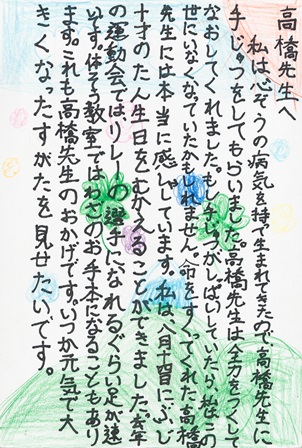 高橋先生へ
私は心ぞうの病気を持て生まれてきたので高橋先生に
手じゅつをしてもらいました。高橋先生は全力をつくして
なおしてくれました。もし手じゅつがしっぱいしていたら、私はこの
世にいなくなっていたかもしれません。命をすくってくれた高橋
先生には本当に感しゃしています。私は八月十四日にぶじ
十才のたん生日をむかえることができました。去年
の運動会では、リレーの選手になれるぐらい足が速
いです。体そう教室では、わざのお手本になることもあり
ます。これも高橋先生のおかげです。いつか元気で大
きくなったすがたを見せたいです。